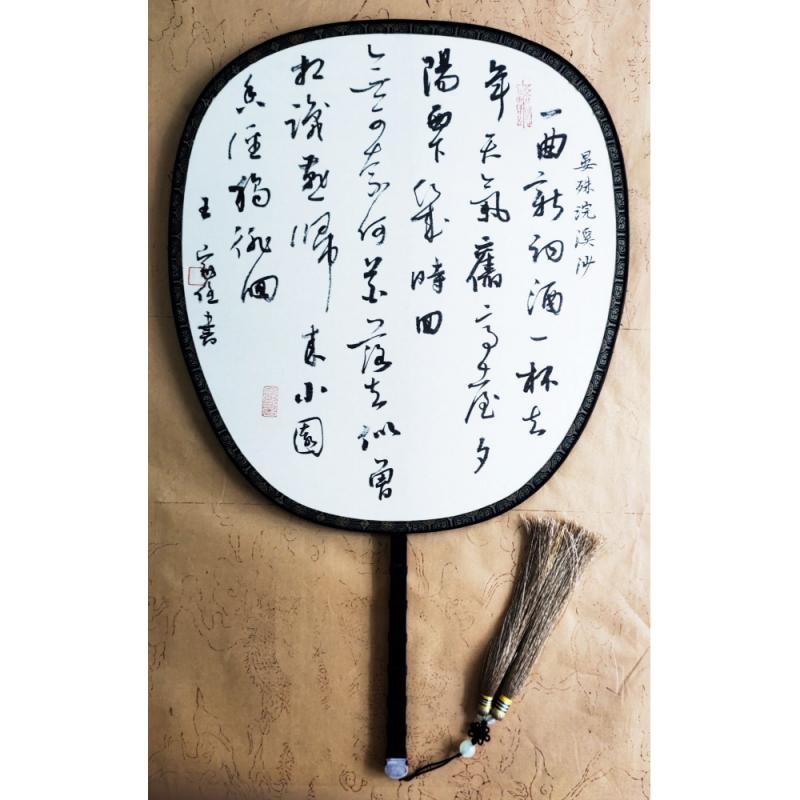 晏殊浣溪沙
一曲新词酒一杯去
年天氣舊亭臺夕
陽西下几时時回
無可奈何花落去似曾
相識燕歸来小園
香徑獨徘徊
王家佳書